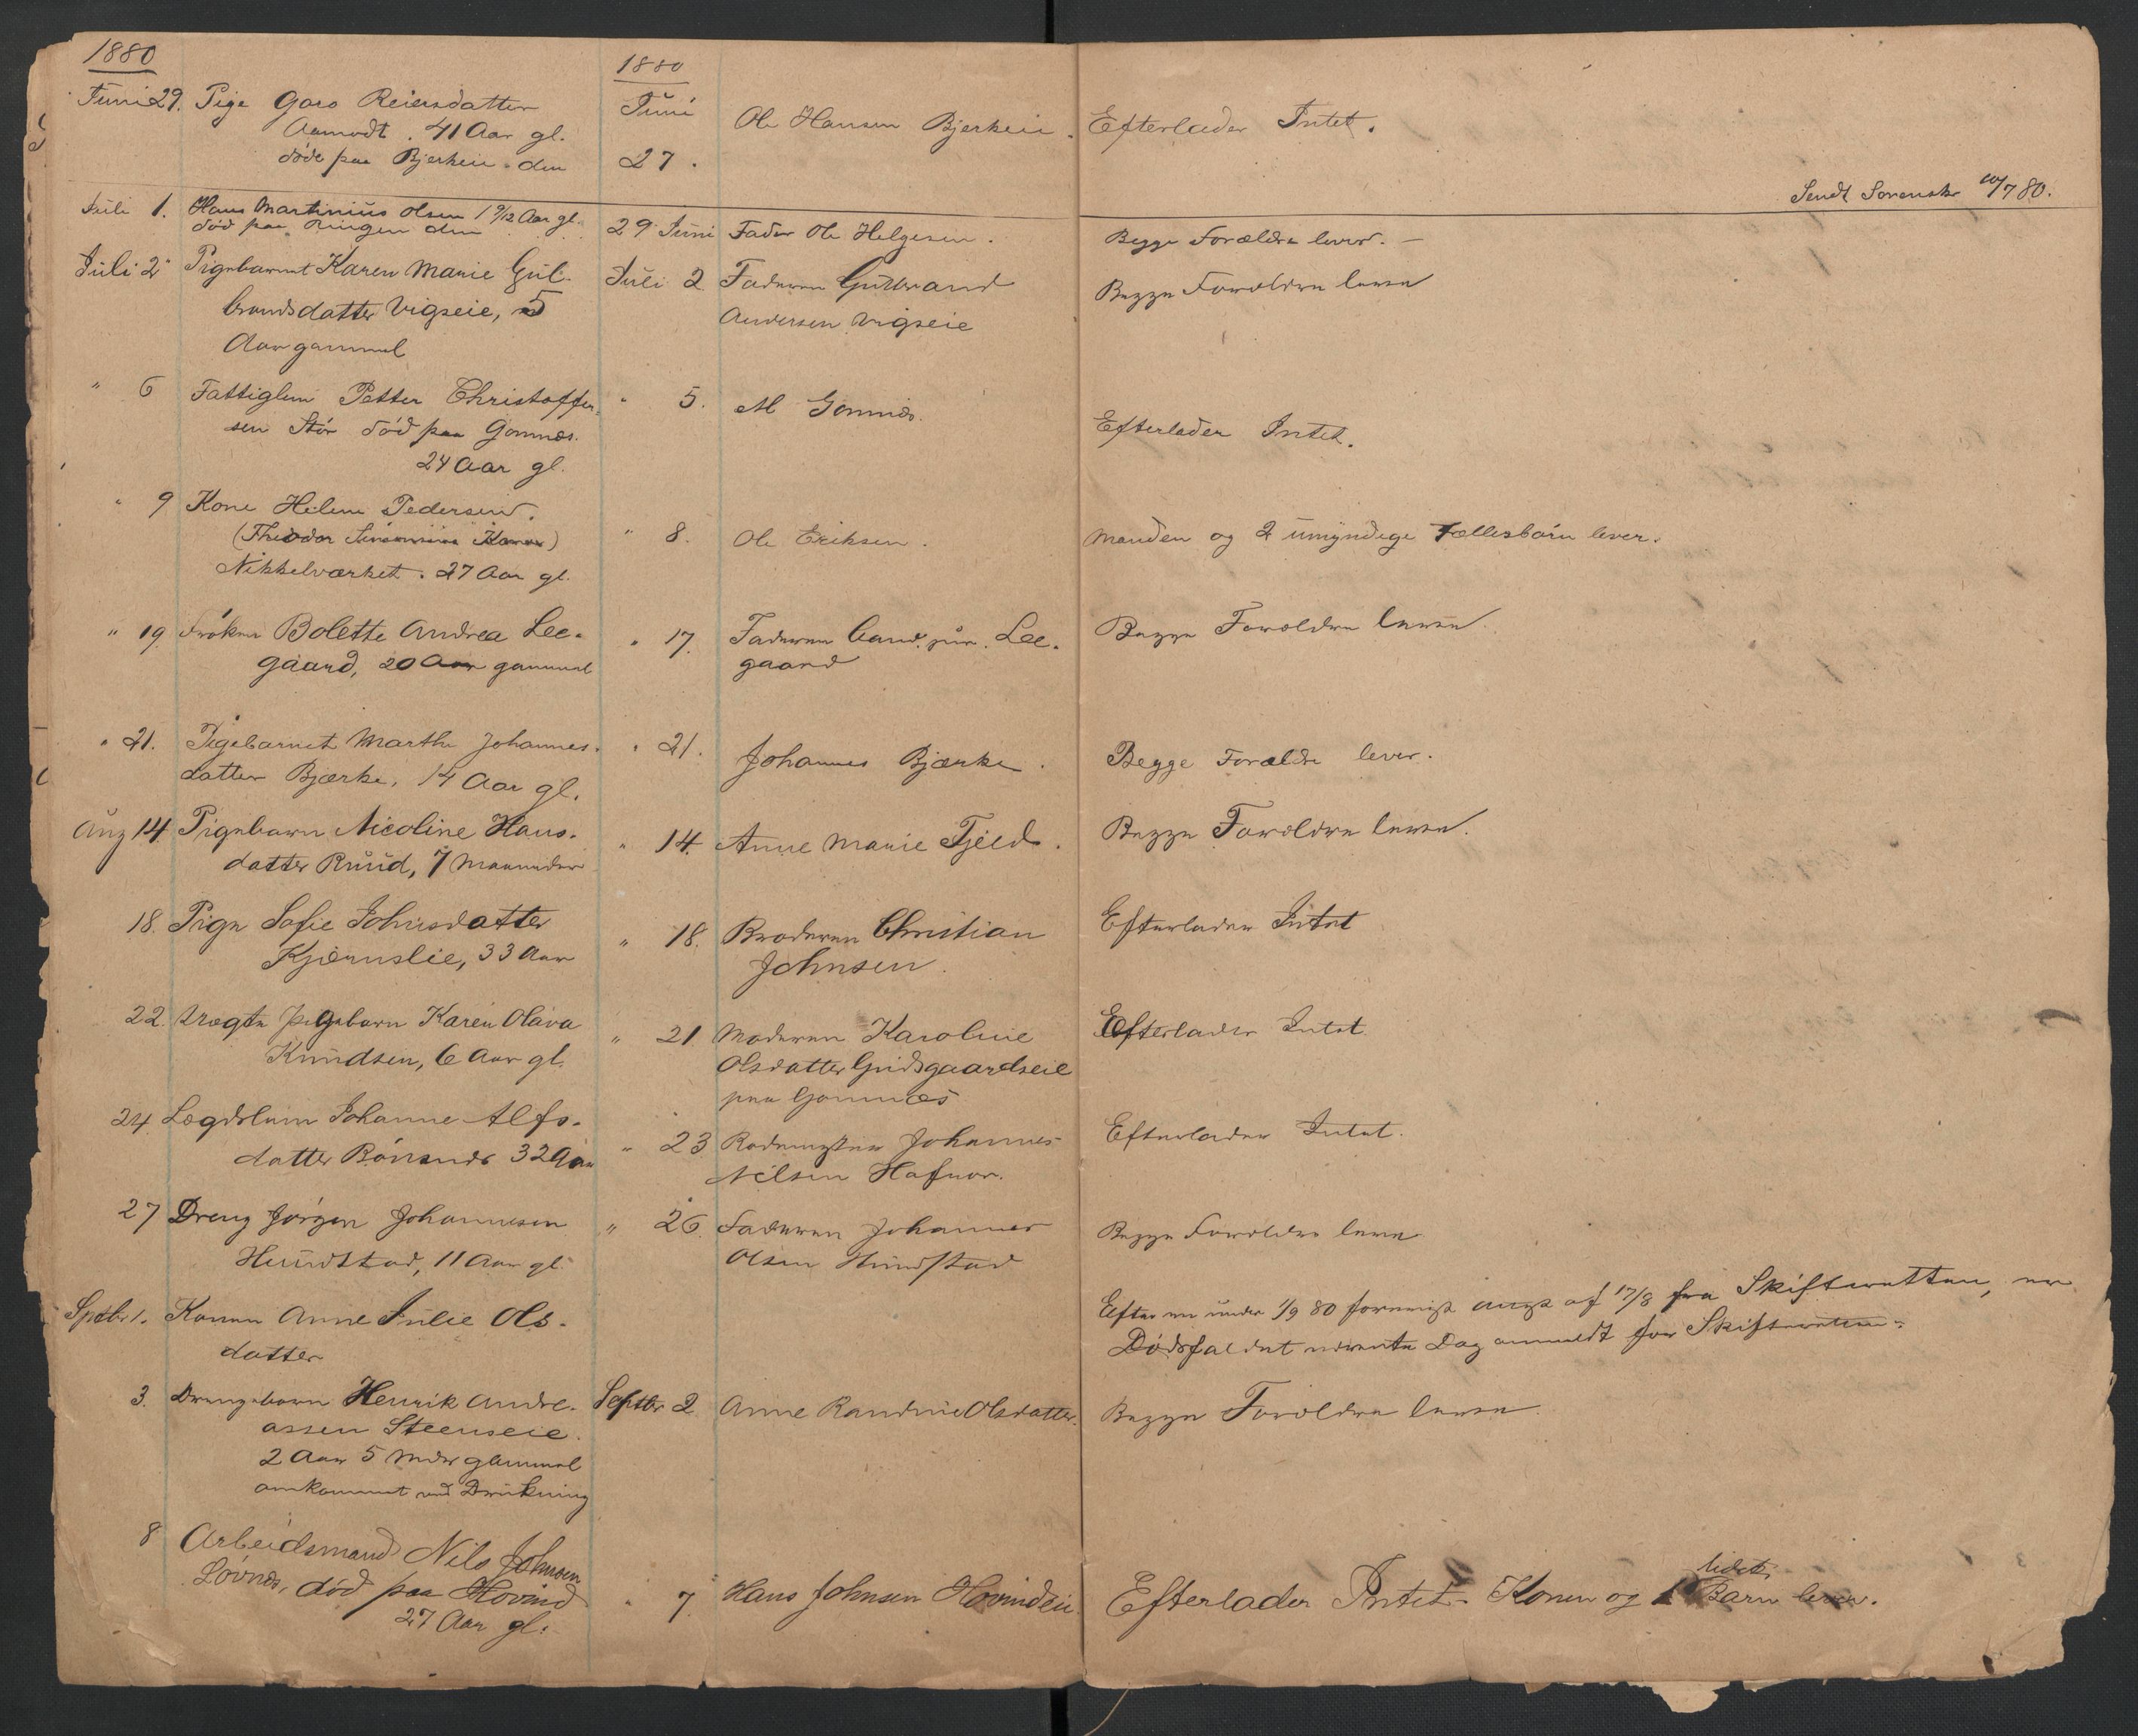 1880
1880
Juni 29. Pige Goro Reiersdatter
Aamodt. 41 Aar gl.
døde paa Bjerkeie den
Juni
27.
Ole Hansen Bjerkeie.
Efterlader Intet.
Sendt Sorenskr 10/7 80.
Juli 1. Hans Martinius Olsen 1 9/12 Aar gl.
død paa Ringen den
29 Juni Fader Ole Helgesen.
Begge Forældre lever. —
Juli 2 Pigebarnet Karen Marie Gul-
brandsdatter Vigseie, 5
Aar gammel
Juli 2 Faderen Gulbrand
Andersen Vigseie
Begge Forældre leve
" 6 Fattiglem Petter Christoffer-
sen Stór død paa Gomnæs.
24 Aar gl.
" 5. M Gomnæs.
Efterlader Intet.
" 9 Kone Helene Pedersen.
(Theodor Kone)
Nikkelværket. 27 Aar gl.
" 8. Ole Eriksen.
Manden og 2 umyndige Fællesbørn lever.
" 19. Frøken Bolette Andrea Lee-
gaard, 20 Aar gammel
" 17. Faderen Cand. jur. Lee-
gaard
Begge Forældre leve.
" 21. Pigebarnet Marthe Johannes-
datter Bjærke, 14 Aar gl.
" 21. Johannes Bjærke.
Begge Forældre lever.
Aug 14. Pigebarn Nicoline Hans-
datter Ruud, 7 Maaneder
" 14. Anne Marie Fjeld.
Begge Forældre leve.
18. Pige Sofie Johnsdatter
Kjærnslie, 33 Aar
" 18. Broderen Christian
Johnsen.
Efterlader Intet
22. Uægte Pigebarn Karen Olava
Knudsen, 6 Aar gl.
" 21 Moderen Karoline
Olsdatter Gudsgaardseie
paa Gomnæs
Efterlader Intet
24. Lægdslem Johanne Alfs-
datter 32 Aar
" 23. Rodemester Johannes
Nilsen Hafnor.
Efterlader Intet.
27 Dreng Jørgen Johannesen
Hundstad, 11 Aar gl.
" 26. Faderen Johannes
Olsen Hundstad
Begge Forældre leve
Septbr 1. Konen Anne Julie Ols-
datter
Efter en under 1/9 80 forevist af 17/8 fra Skifteretten, er
Dødsfaldet nævnte Dag anmeldt for Skifteretten.
3. Drengebarn Henrik Andre-
assen Steenseie.
2 Aar 5 Mdr gammel
omkommet ved Drukning
Septbr 2 Anne Randine Olsdatter.
Begge Forældre leve.
8 Arbeidsmand Nils Johnsen
Løvnæs, død paa Hovind
27 Aar gl.
" 7. Hans Johnsen Hovindeie
Efterlader Intet. Konen og 1 lidet Barn lever.